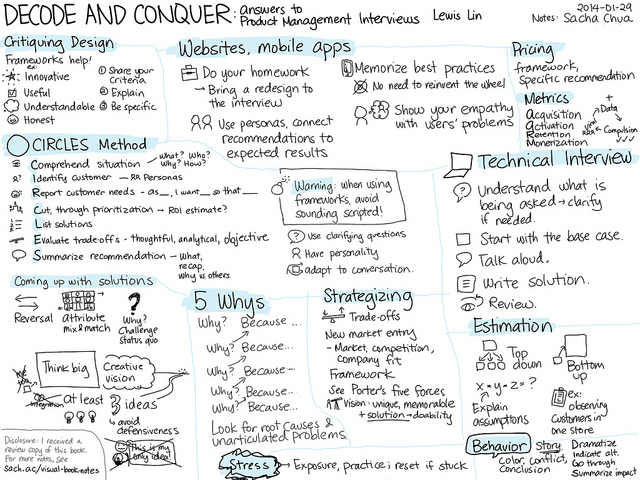 DECODE AND CONQUER: Answers to
Product Management Interviews Lewis Lin
2014-01-29
Notes: Sacha Chua
Critiquing Design
Frameworks help!
ex:
Innovative
Useful
Understandable
Honest
① Share your
criteria
② Explain
③ Be specific
Websites, mobile apps
Do your homework
→ Bring a redesign to
the interview
Use personas, connect
recommendations to
expected results
Memorize best practices
No need to reinvent the wheel
Show your empathy
with users' problems
Pricing
framework,
specific recommendation
Metrics
Acquisition
Activation
Retention
Monetization
+
Data
Compulsion
CIRCLES Method
Comprehend situation
What? Who?
Why? How?
Identify customer — Personas
Report customer needs - as__, I want__ so that __
Cut, through prioritization → ROI estimate?
List solutions
Evaluate trade-offs - thoughtful, analytical, objective
Summarize recommendation - What,
recap,
Why vs others
Warning: when using
frameworks, avoid
sounding scripted!
Use clarifying questions
Have personality
adapt to conversation.
Technical Interview
Understand what is
being asked → clarify
if needed.
Start with the base case.
Talk aloud.
Write solution.
Review.
Coming up with solutions
Reversal
attribute
mix & match
?
Why?
Challenge
status quo
Think big
Creative
vision
Integration
at least 3 ideas
↳ avoid
defensiveness
This is my
only idea!
Disclosure: I received a
review copy of this book.
For more notes, see
sach.ac/visual-book-notes
5 Whys
Why? Because ...
Why? Because ...
Why? Because ...
Why? Because ...
Why? Because ...
Look for root causes &
unarticulated problems
Strategizing
Trade-offs
New market entry
- Market, competition,
company fit
Framework
See Porter's five forces
Vision: unique, memorable
+ solution → doability
Stress → Exposure, practice; reset if stuck
Estimation
Top
down
Bottom
up
x · y · z = ?
Explain
assumptions
ex:
observing
Customers in
one store
Behavior
Story
Color, conflict,
Conclusion
Dramatize
Indicate alt.
Go through
Summarize impact